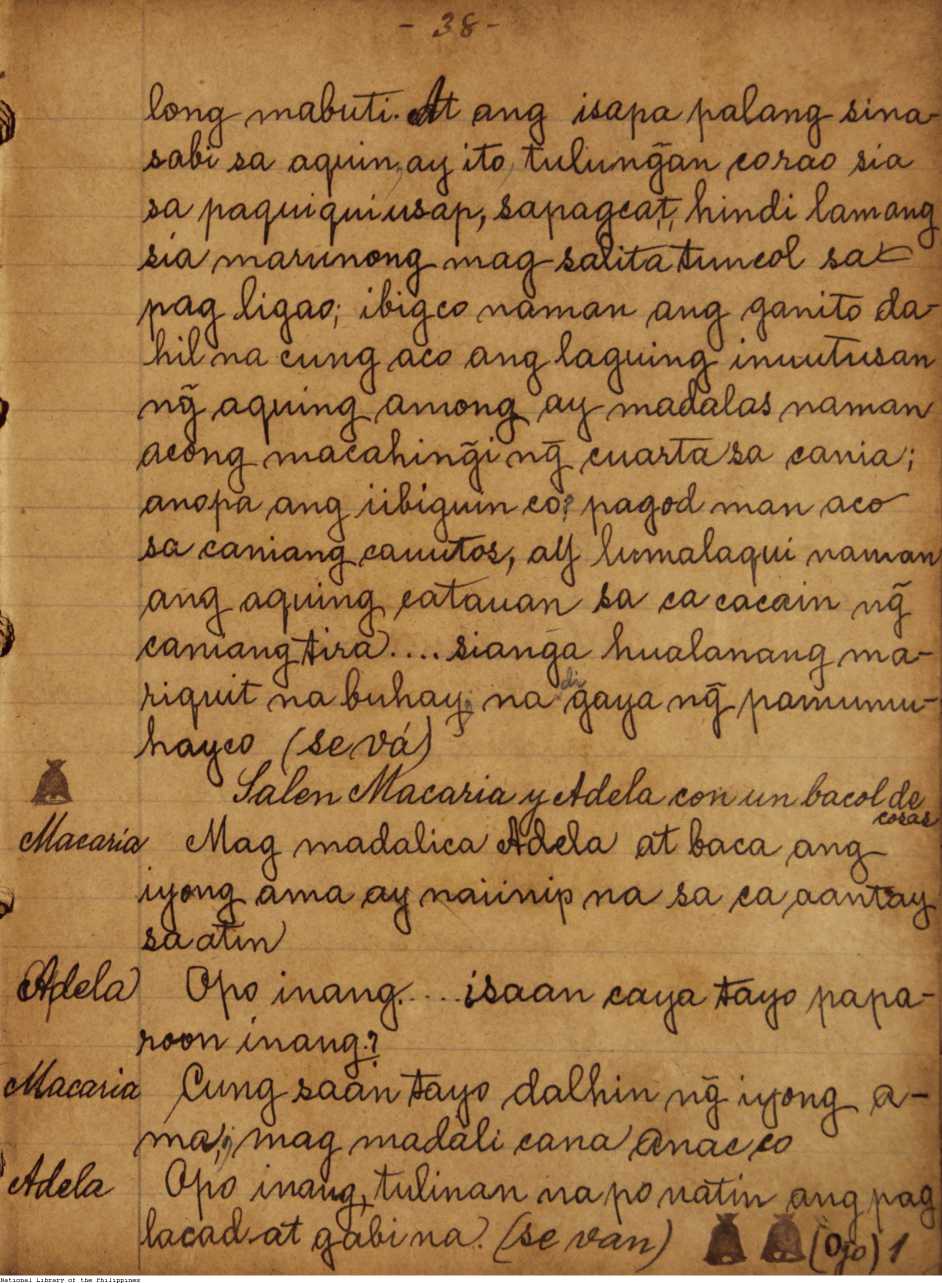 - 38 -
long mabuti. At ang isapa palang sina-
sabi sa aquin, ay ito, tulung̃an corao sia
sa paquiquiusap, sapagcat, hindi lamang
sia marunong mag salita tuncol sa
pag ligao; ibigco naman ang ganito da-
hil na cung aco ang laguing inuutusan
ng̃ aquing among ay madalas naman
acong macahing̃i ng̃ cuarta sa cania;
anopa ang iibiguin co? pagod man aco
sa caniang cauutos, ay lumalaqui naman
ang aquing catauan sa ca cacain ng̃
caniang tira.... siang̃a hualanang ma-
riquit na buhay, na di gaya ng̃ pamumu-
hayco (se vá)
Salen Macaria y Adela con un bacol de
cosas
Macaria Mag madalica Adela at baca ang
iyong ama ay naiinip na sa ca aantay
sa atin
Adela Opo inang.... isaan caya tayo papa-
roon inang?
Macaria Cung saan tayo dalhin ng̃ iyong a-
ma; mag madali cana anac co
Adela Opo inang, tulinan na po natin ang pag
lacad at gabi na. (se van) (Ojo) 1
National Library of the Philippines